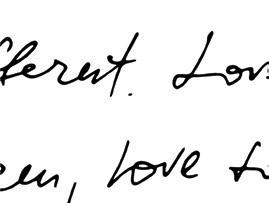 fferent. Lov
een, love